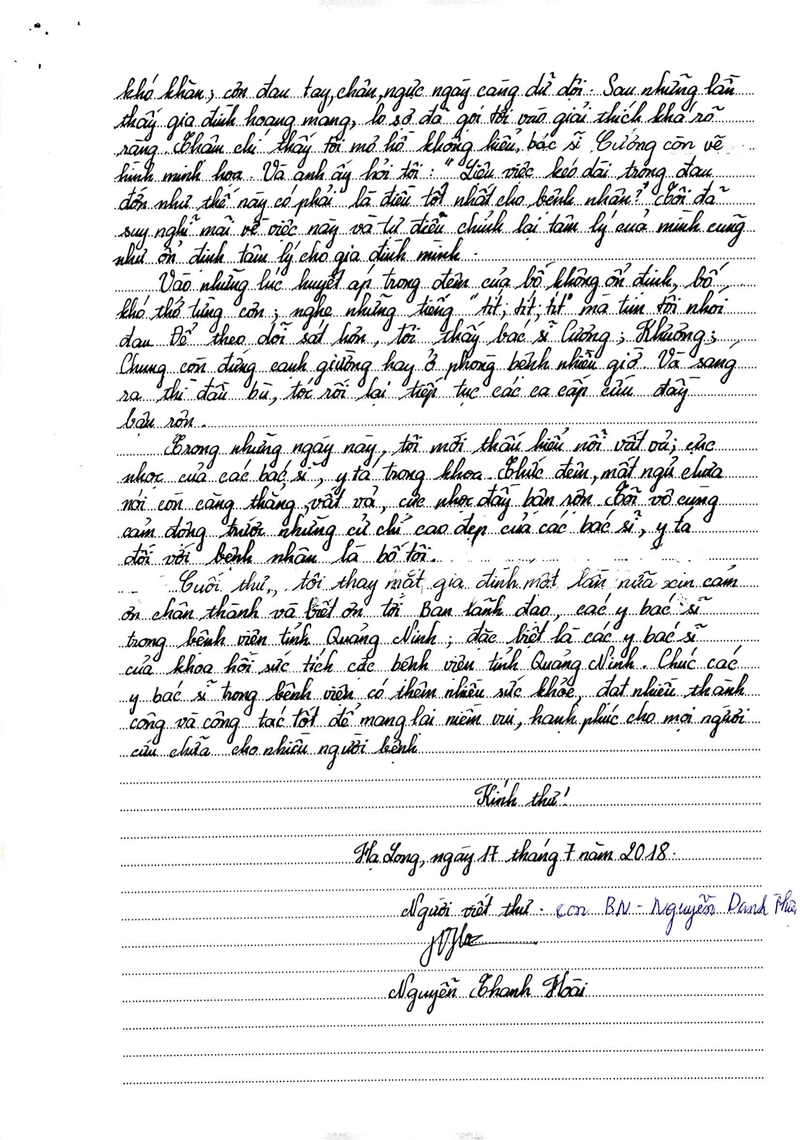 khó khăn; cơn đau tay, chân, ngực ngày càng dữ dội. Sau những lần
thấy gia đình hoang mang, lo sợ đã gọi tôi vào giải thích khá rõ
ràng. Thậm chí thấy tôi mơ hồ không hiểu, bác sĩ Cường còn vẽ
hình minh họa. Và anh ấy hỏi tôi: "Liệu việc kéo dài trong đau
đớn như thế này có phải là điều tốt nhất cho bệnh nhân?" Tôi đã
suy nghĩ mãi về việc này và tự điều chỉnh lại tâm lý của mình cũng
như ổn định tâm lý cho gia đình mình.
Vào những lúc huyết áp trong đêm của bố không ổn định, bố
khó thở từng cơn; nghe những tiếng "tít; tít; tít" mà tim tôi nhói
đau. Để theo dõi sát hơn, tôi thấy bác sĩ Cương; Khương;
Chung còn đứng cạnh giường hay ở phòng bệnh nhiều giờ. Và sáng
ra thì đầu bù, tóc rối lại tiếp tục các ca cấp cứu đầy
bận rộn.
Trong những ngày này, tôi mới thấu hiểu nỗi vất vả; cực
nhọc của các bác sĩ, y tá trong khoa. Thức đêm, mất ngủ chưa
nói còn căng thẳng, vất vả, cực nhọc đầy bận rộn. Tôi vô cùng
cảm động trước những cử chỉ cao đẹp của các bác sĩ, y tá
đối với bệnh nhân là bố tôi.
Cuối thư, tôi thay mặt gia đình một lần nữa xin cảm
ơn chân thành và biết ơn tới Ban lãnh đạo, các y bác sĩ
trong bệnh viện tỉnh Quảng Ninh; đặc biệt là các y bác sĩ
của khoa hồi sức tích cực bệnh viện tỉnh Quảng Ninh. Chúc các
y bác sĩ trong bệnh viện có thêm nhiều sức khỏe, đạt nhiều thành
công và công tác tốt để mang lại niềm vui, hạnh phúc cho mọi người
cứu chữa cho nhiều người bệnh
Kính thư!
Hạ Long, ngày 17 tháng 7 năm 2018.
Người viết thư. con BN - Nguyễn Danh
Nguyễn Thanh Hoài